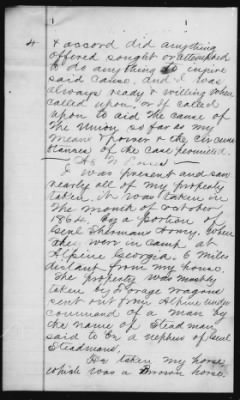 4
& accord did anything
offered sought or attempted
to do anything to injure
said cause. and I was
always ready & willing when
called upon. or if called
upon to aid the cause of
the Union, so far as my
means & power & the circum
stances of the case permitted.
I was present and saw
nearly all of my property
taken. it was taken in
the month of October
1864. By a portion of
Genl Shermans Army. When
they were in camp at
Alpine Georgia. 6 miles
distant from my house.
The property was mostly
taken by forage wagons
sent out from Alpine under
command of a man by
the name of Steadman
said to be a nephew of Genl
Steadmans.
He taken my horse
which was a Brown horse